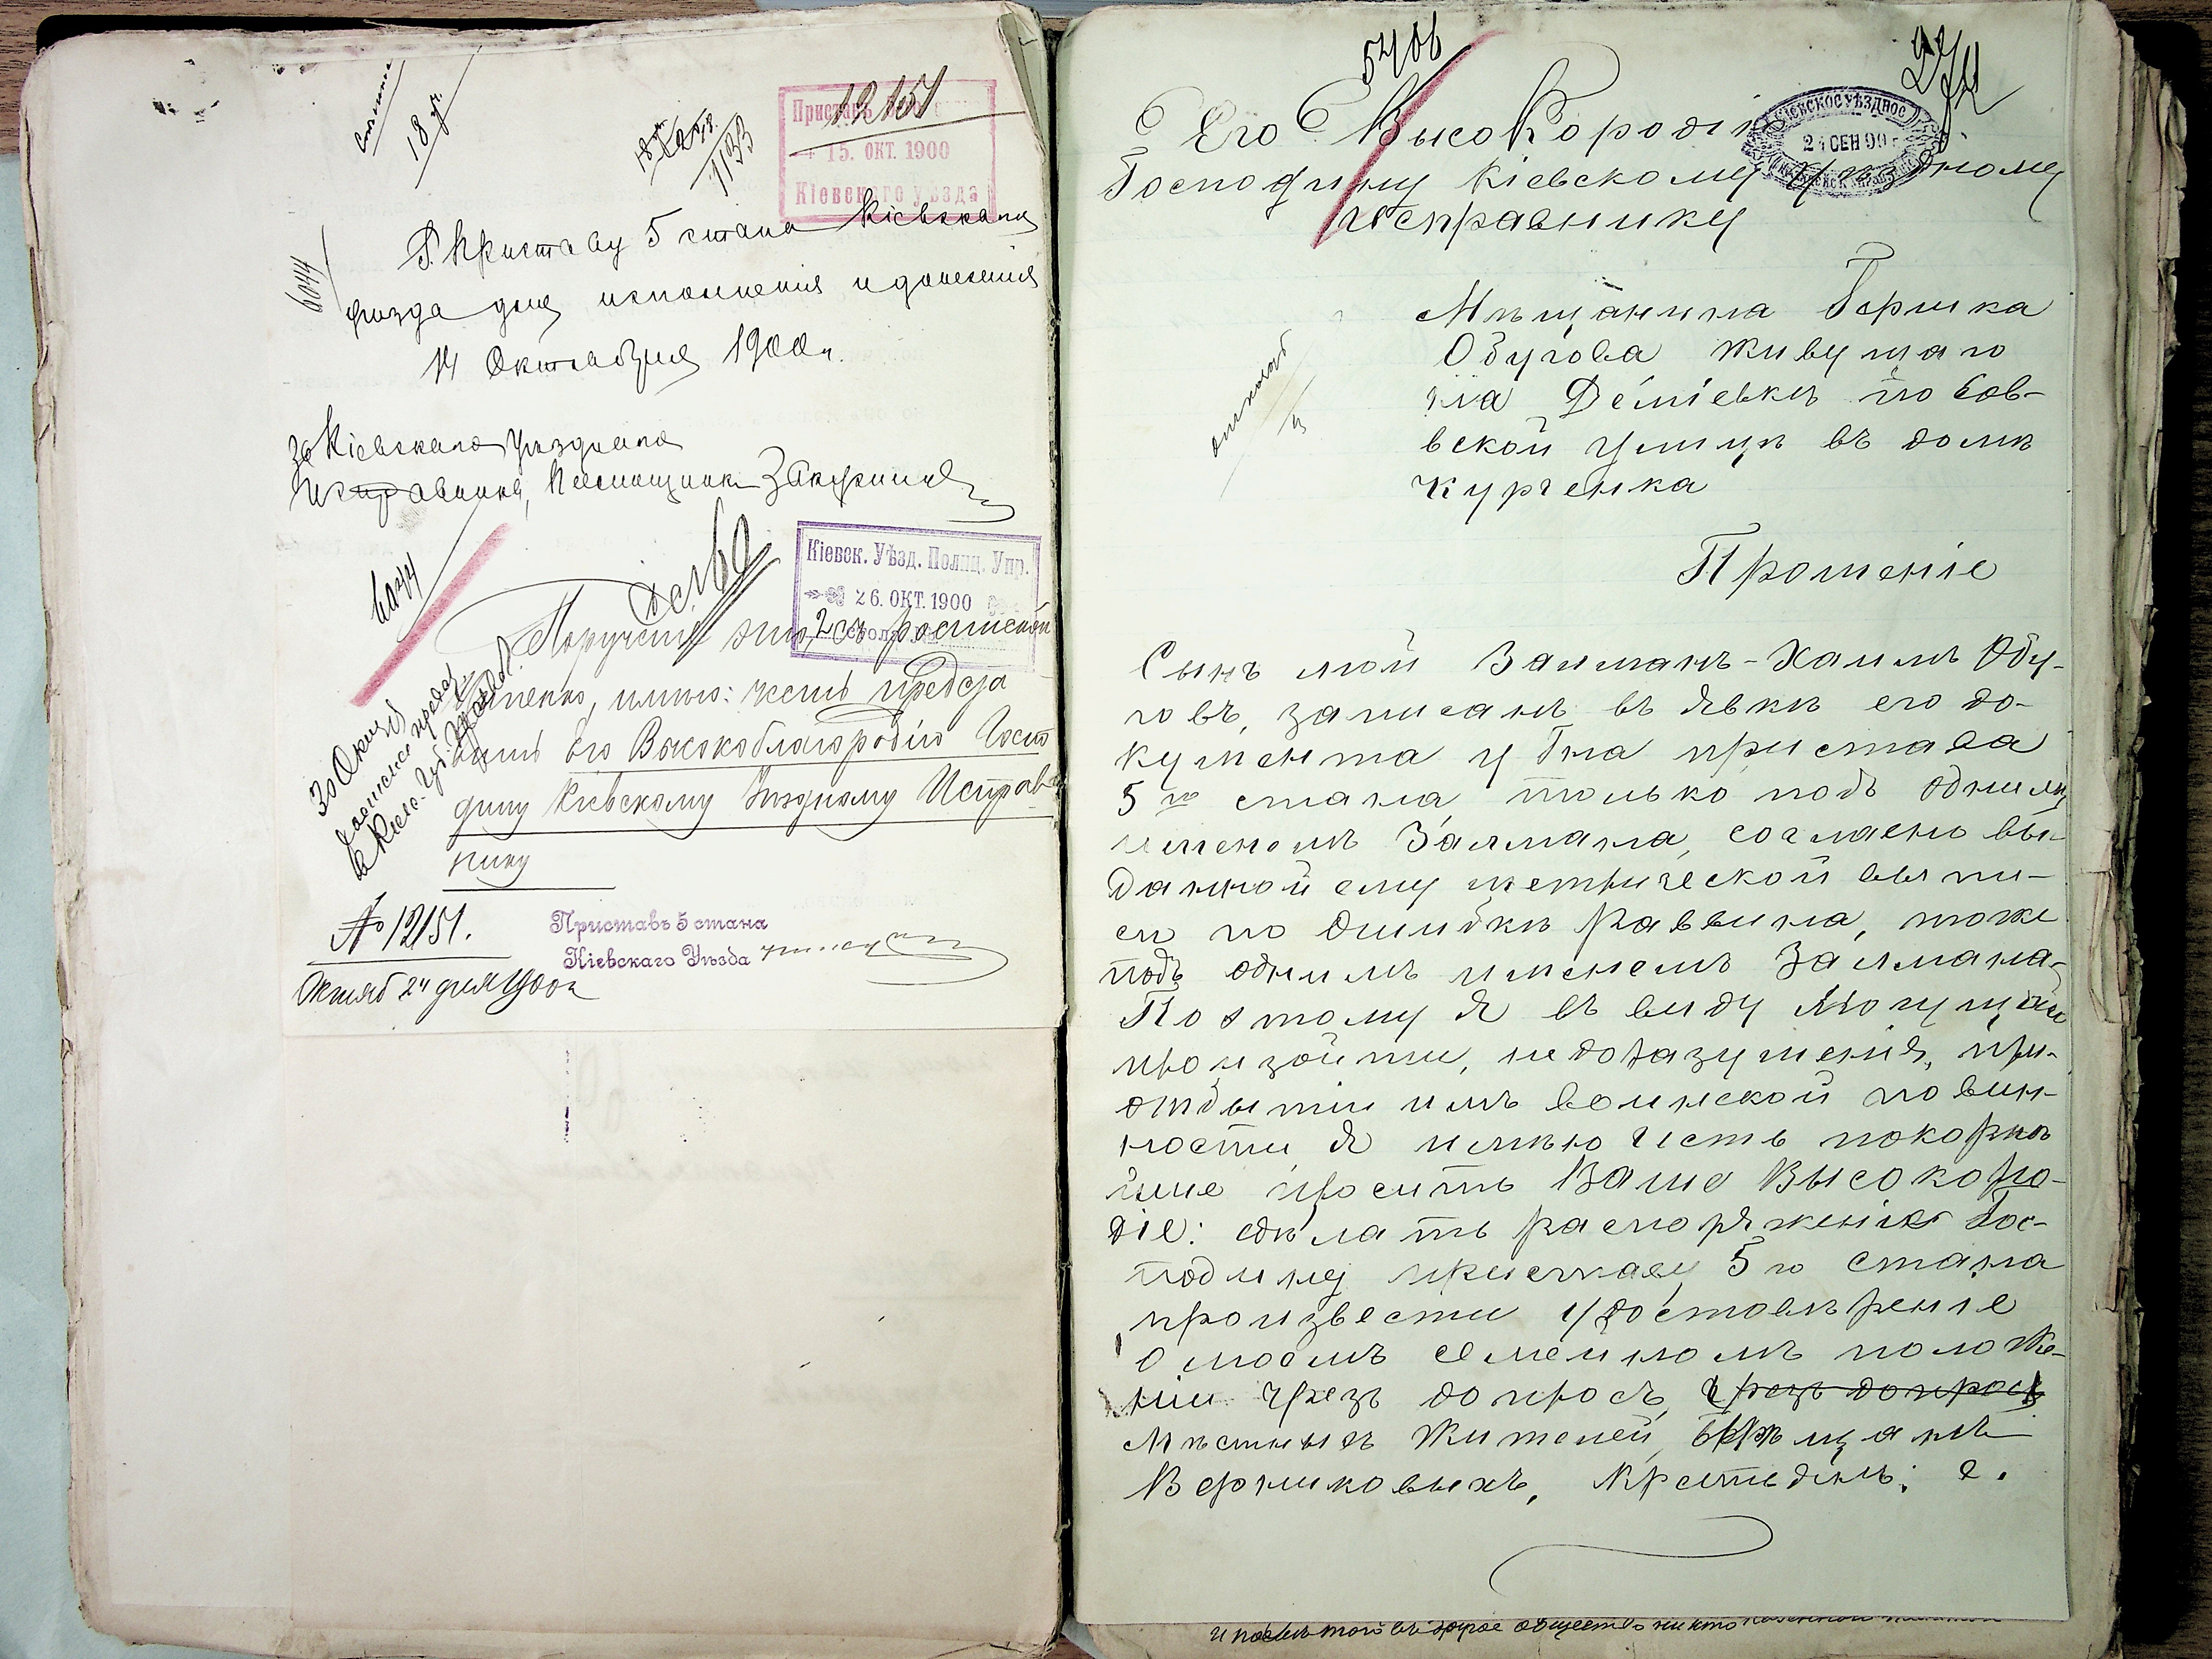 18 г.
1133
12151
Приставъ
15. ОКТ. 1900
Кіевскаго уѣзда
6044
Г. Приставу 5 стана Кіевскаго
уѣзда для исполненія и донесенія
14 Октября 1900 г.
За Кіевскаго Уѣзднаго
Исправника, Помощникъ
6044
Кіевск. Уѣзд. Полиц. Упр.
26. ОКТ. 1900
2 стола
Порученіе это, съ роспиской
имѣю честь предста
вить Его Высокоблагородію Госпо
дину Кіевскому Уѣздному Исправ
нику
30 Октяб
№ 12151.
Приставъ 5 стана
Кіевскаго Уѣзда
Октяб 24 дня 1900 г
5406
27
КІЕВСКОЕ УѢЗДНОЕ
24 СЕН 90
Его Высокородію
Господину Кіевскому Уѣздному
Исправнику
Мѣщанина Гершка
Обугова живущаго
на Деміевкѣ по Сов-
вской улицѣ въ домѣ
Курченка
Прошеніе
Сынъ мой Залманъ-Хаимъ Обу-
говъ, записанъ въ явкѣ его до-
кумента у Гна пристава
5го стана только подъ однимъ
именемъ Залмана, согласно вы-
данной ему метрической выпи-
си по ошибкѣ Раввина, тоже
подъ однимъ именемъ Залмана-
Поэтому я въ виду могущаго
произойти, недоразуменія, при
отбытіи имъ воинской повин-
ности, я имѣю честь покорнѣ
йше просить Ваше Высокоро-
діе: сдѣлать распоряженія Гос-
подину приставу 5го стана
произвести удостовѣреніе
о моемъ семейномъ положе-
ніи чрезъ допросъ, чрезъ допросъ
мѣстныхъ жителей, мѣщанъ
Верниковыхъ, Крестьянъ: 2.
и послѣ того въ другое общество никто